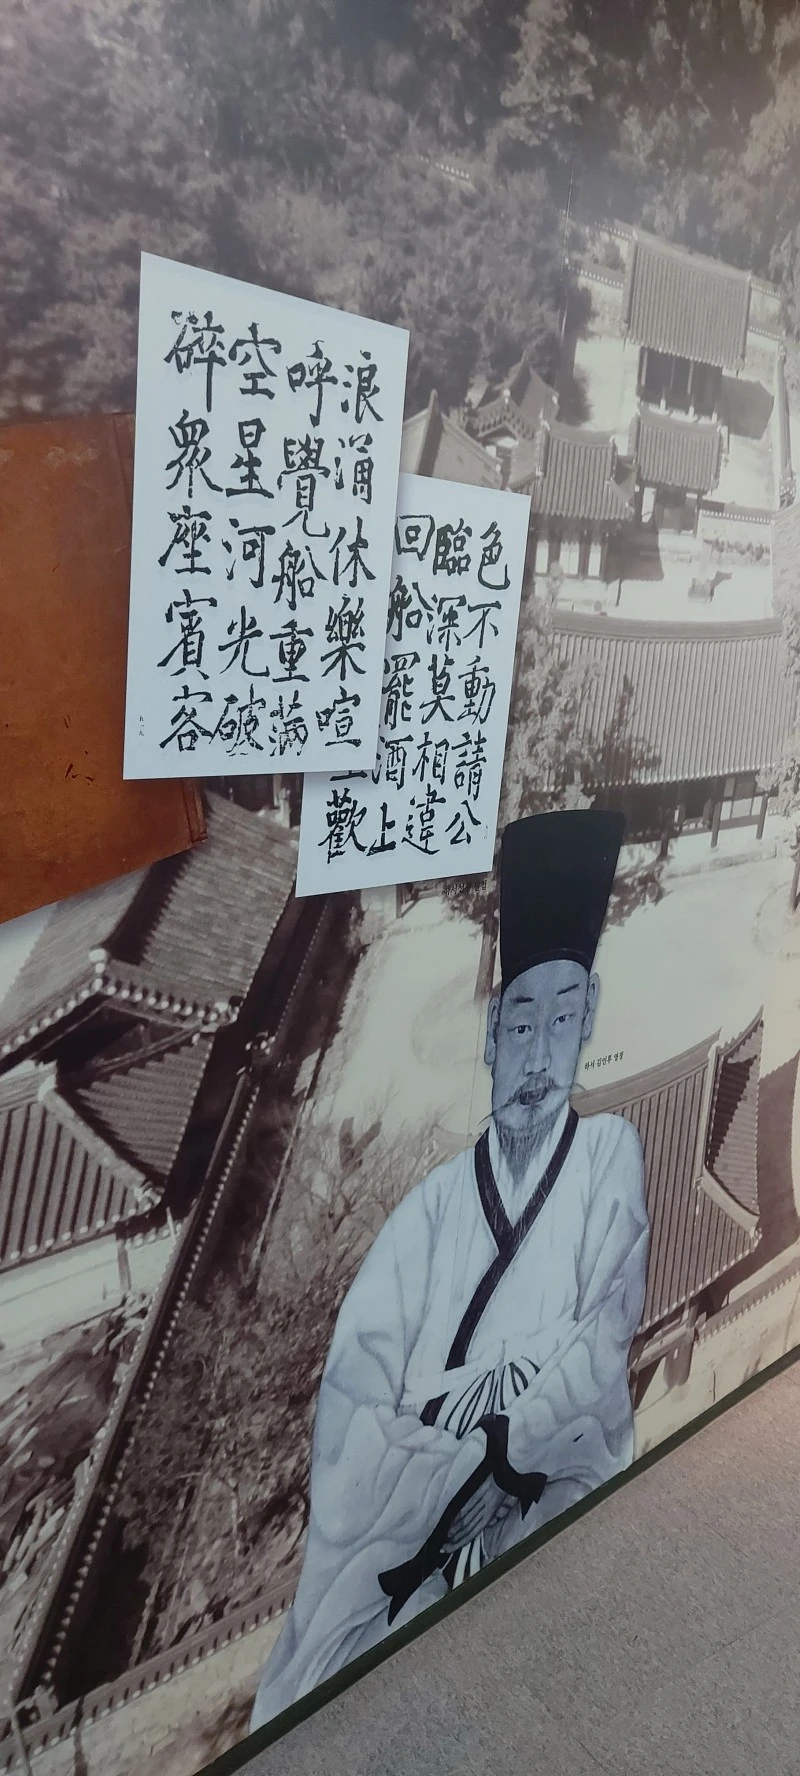 浪涌休樂喧
呼覺船重滿
空星河光破
碎衆座賓客
色不動請公
臨深莫相違
回船罷酒上
歡
하서 김인후 영정